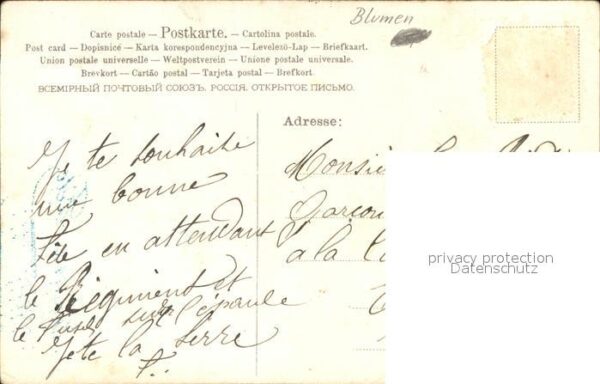 Blumen
Carte postale – Postkarte. – Cartolina postale.
Post card – Dopisnice – Karta korespondencyjna – Levelezö-Lap – Briefkaart.
Union postale universelle – Weltpostverein – Unione postale universale.
Brevkort – Cartão postal – Tarjeta postal – Brefkort.
ВСЕМІРНЫЙ ПОЧТОВЫЙ СОЮЗЪ. РОССІЯ. ОТКРЫТОЕ ПИСЬМО.
Je te souhaite
une bonne
fête en attendant
le Régiment et
le fusil sur l'épaule
Je te la serre
Adresse:
Monsie
Garçon
à la
privacy protection
Datenschutz